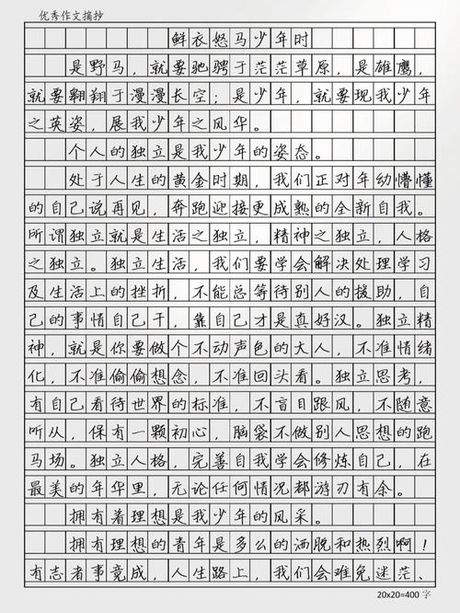 优秀作文摘抄
鲜衣怒马少年时
是野马，就要驰骋于茫茫草原，是雄鹰，
就要翱翔于漫漫长空；是少年，就要现我少年
之英姿，展我少年之风华。
个人的独立是我少年的姿态。
处于人生的黄金时期，我们正对年幼懵懂
的自己说再见，奔跑迎接更成熟的全新自我。
所谓独立就是生活之独立，精神之独立，人格
之独立。独立生活，我们要学会解决处理学习
及生活上的挫折，不能总等待别人的援助，自
己的事情自己干，靠自己才是真好汉。独立精
神，就是你要做个不动声色的大人，不准情绪
化，不准偷偷想念，不准回头看。独立思考，
有自己看待世界的标准，不盲目跟风，不随意
听从，保有一颗初心，脑袋不做别人思想的跑
马场。独立人格，完善自我学会修炼自己，在
最美的年华里，无论任何情况都游刃有余。
拥有着理想是我少年的风采。
拥有理想的青年是多么的洒脱和热烈啊！
有志者事竟成，人生路上，我们会难免迷茫、
20x20=400 字